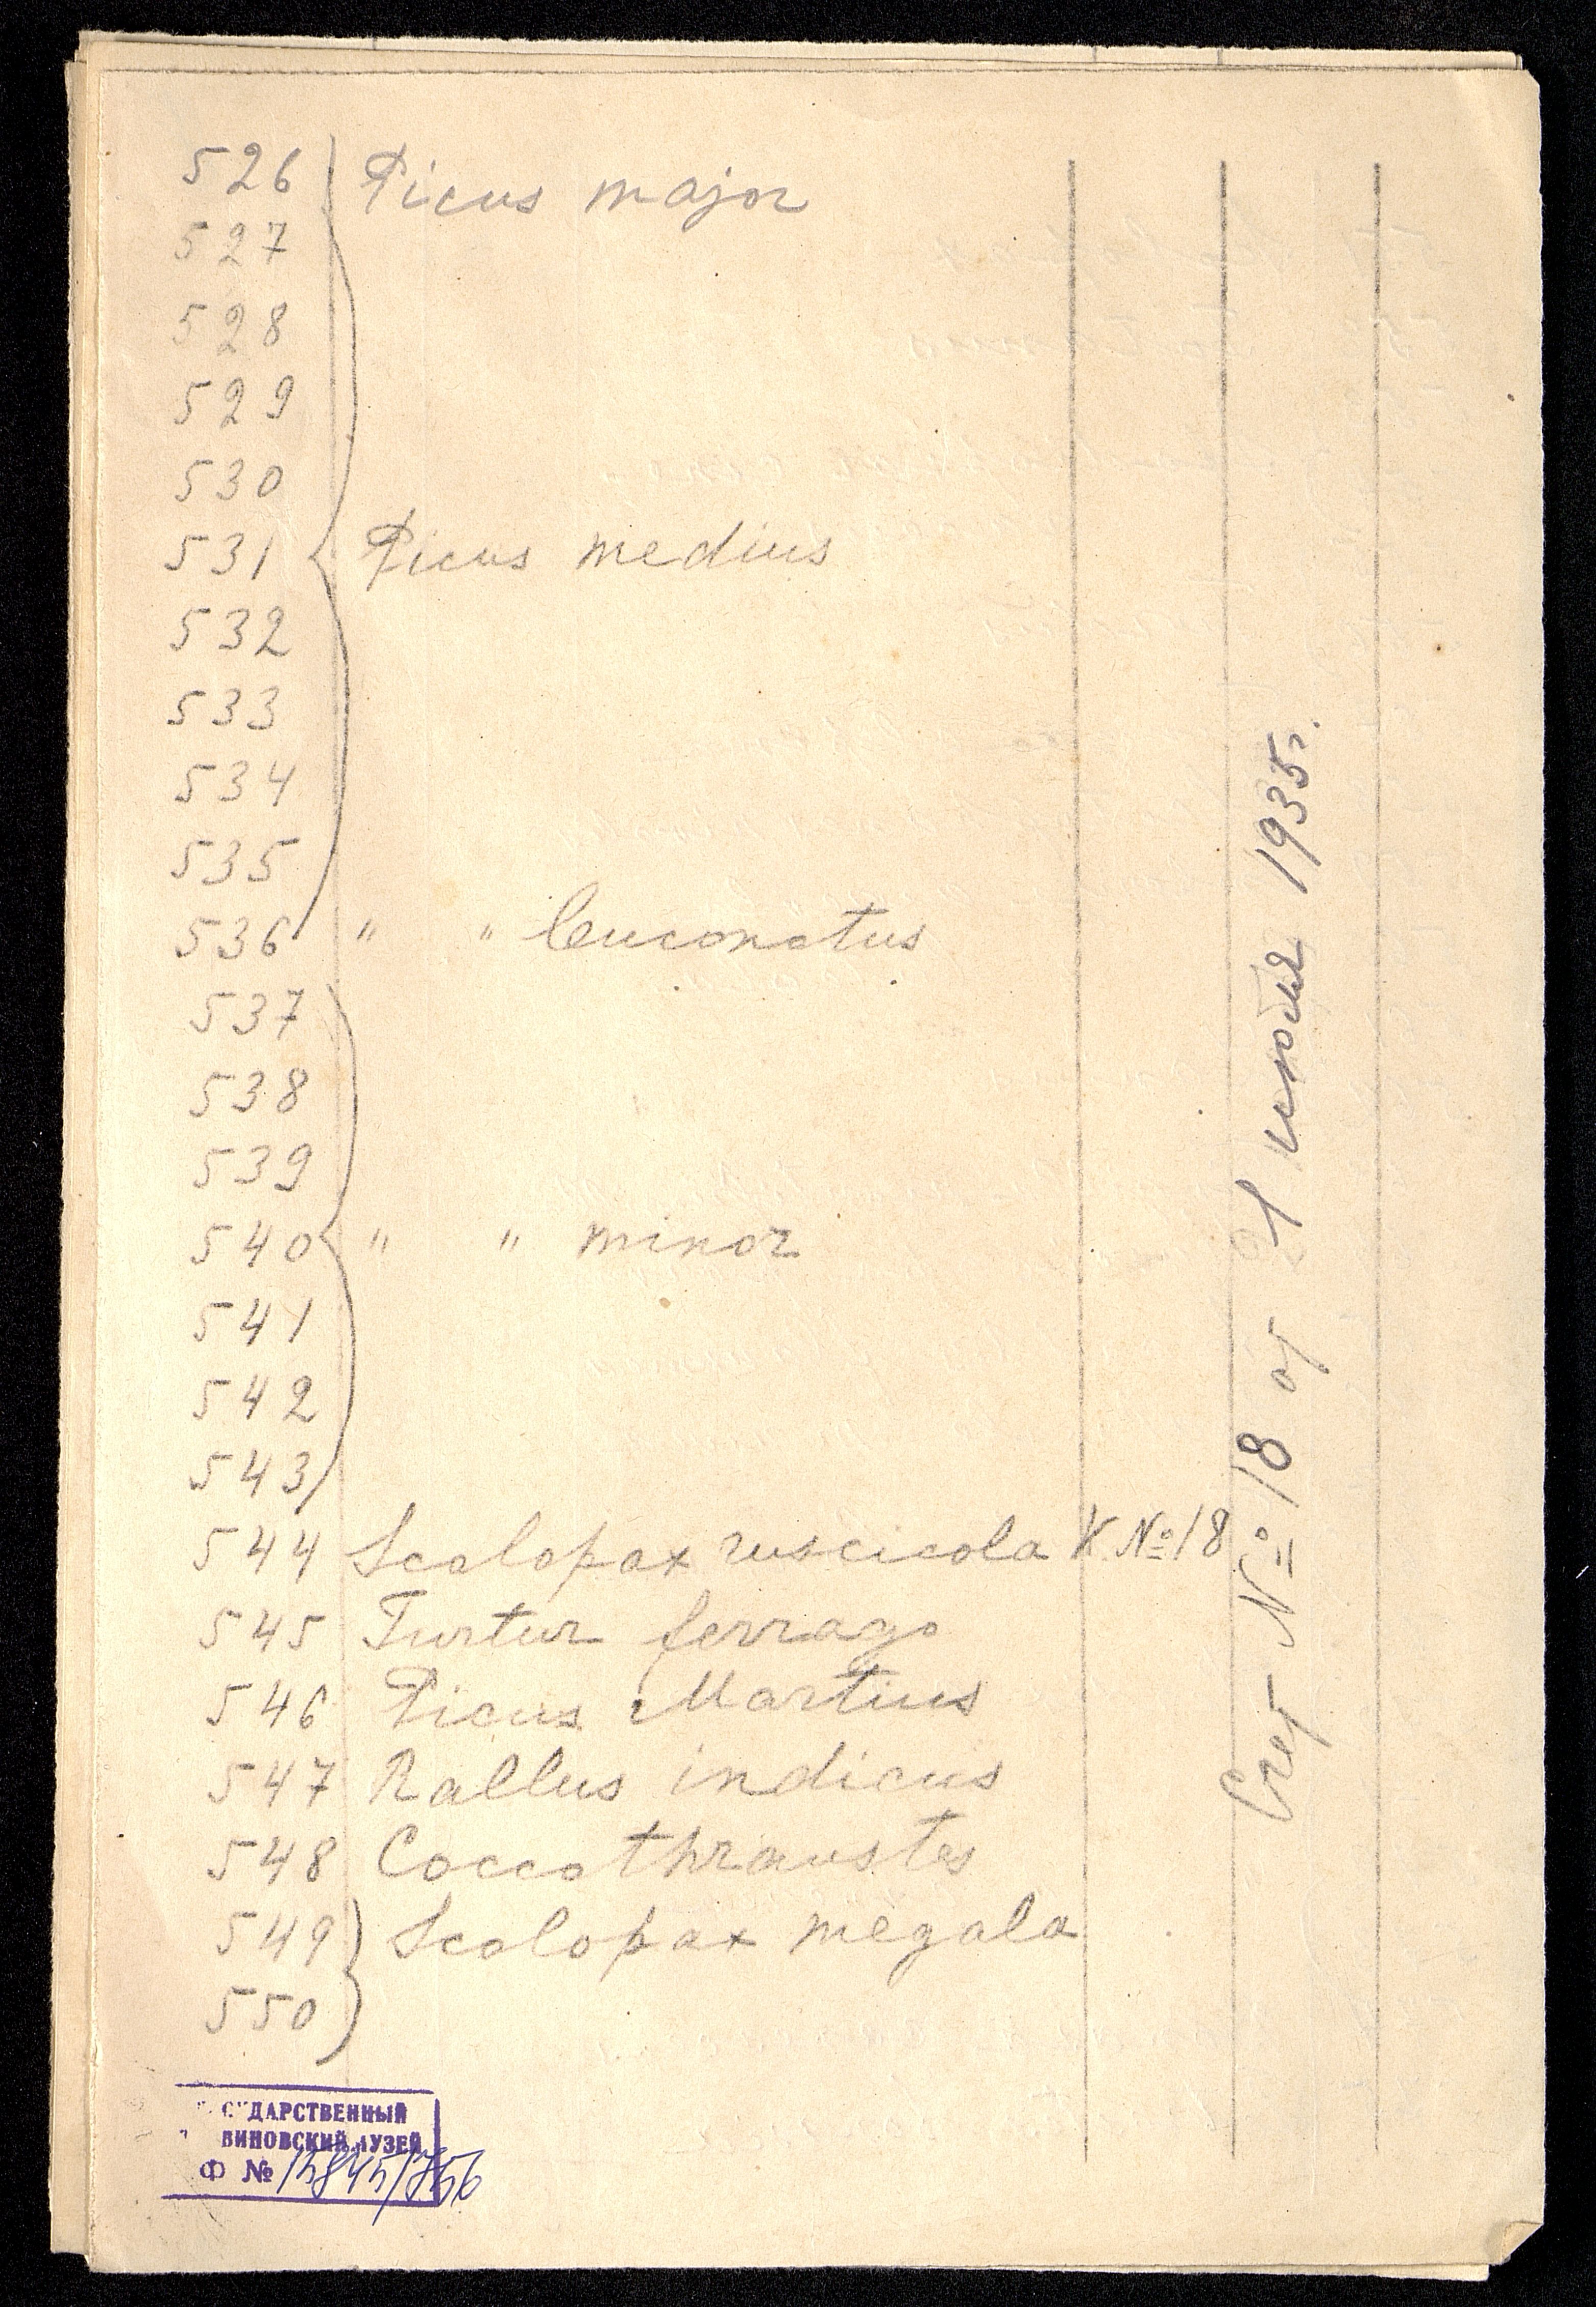 526 Picus major
527
528
529
530
531 Picus medius
532
533
534
535
536 " " leuconotus
537
538
539
540 " " minor
541
542
543
544 Scolopax ruscicola К №18
545 Turtur ferrago
546 Picus Martius
547 Rallus indicus
548 Coccothraustes
549 Scolopax megala
550
Счет № 18 от 21 июля 1935г.
СУДАРСТВЕННЫЙ
ВИНОВСКИЙ МУЗЕЙ
Ф №